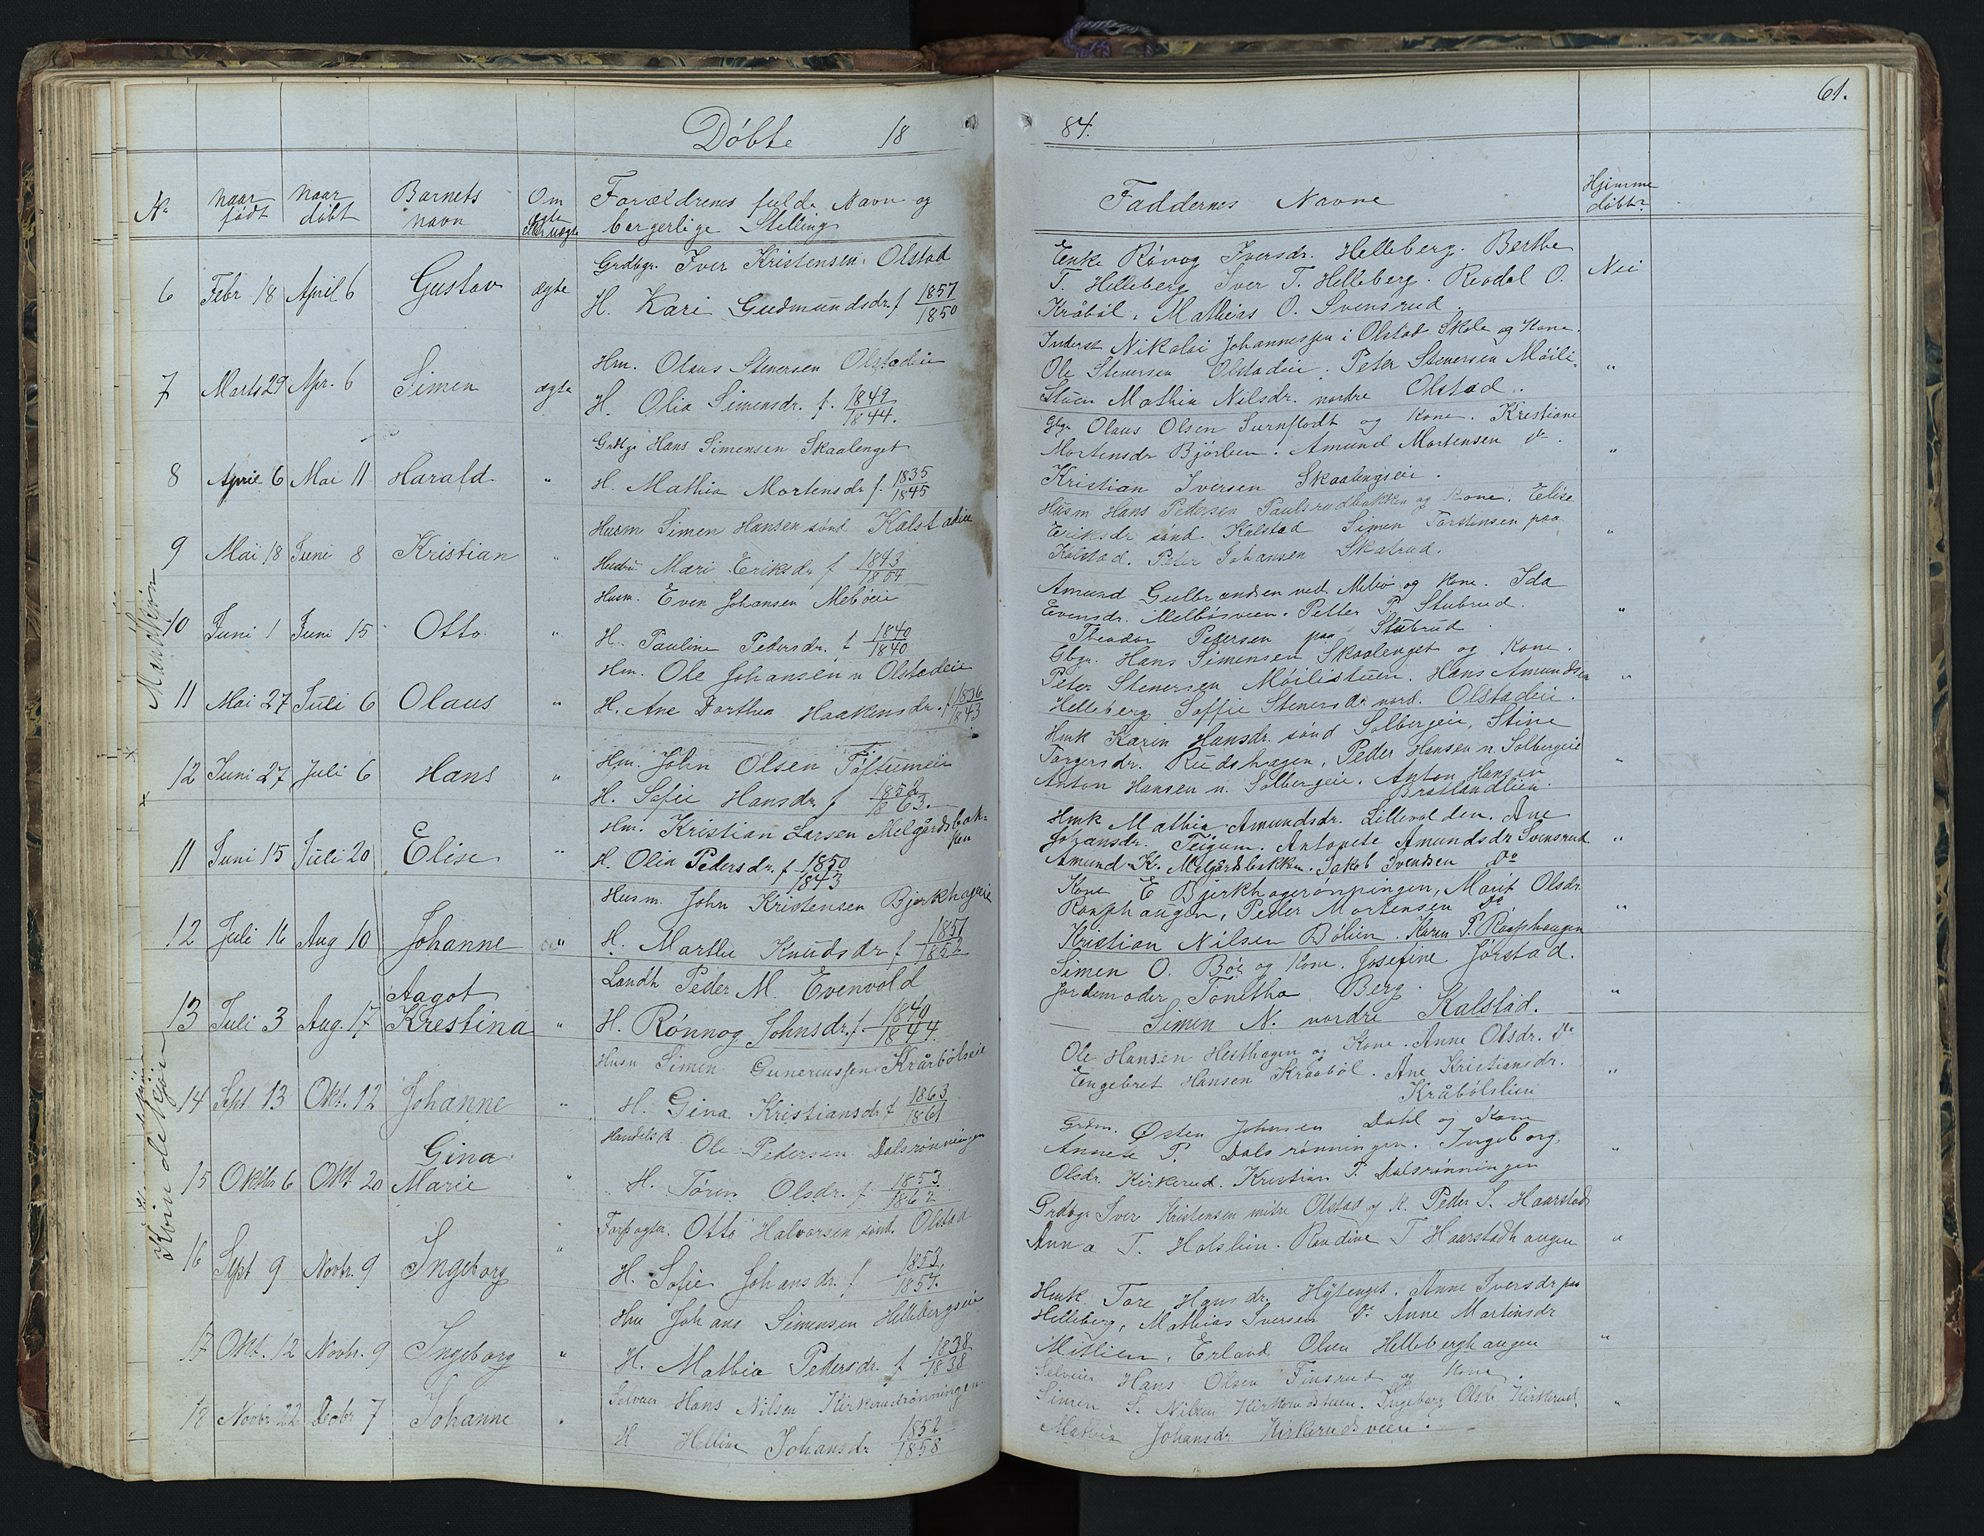 Døbte 18
84.
61.
No naar født naar døbt Barnets navn Om ægte ell. uægte Forældrenes fulde Navn og borgerlige Stilling
Faddernes Navne Hjemme døbt?
6 Febr 18 April 6 Gustav ægte Grdbgr. Iver Kristensen Olstad
H. Kari Gudmundsdr. f 1857 1850
Enke Rønog Iversdr. Helleberg. Berthe
T. Helleberg Iver T. Helleberg. Redol O. Nei
Kråbøl. Mathias O. Svensrud
7 Marts 29 Apr. 6 Simen ægte Hm. Olaus Stenersen Olstadeie
H. Olia Simensdr. f. 1849 1844.
Inderst Nikolai Johannessen i Olstad Skole og Kone.
Ole Stenersen Olstadeie. Peter Stenersen Moili- "
Stuen Mathia Nilsdr. nordre Olstad.
8 April 6 Mai 11 Harald " Grdbgr Hans Simensen Skaalenget
H. Mathia Mortensdr f. 1835 1845
Gbgr Olaus Olsen Surnflodt og Kone. Kristiane
Mortensdr Bjørlien. Amund Mortensen do "
Kristian Iversen Skaalengseie.
9 Mai 18 Juni 8 Kristian " Husm Simen Hansen sønd Kalstadeie
Hustru Mari Eriksdr f 1843 1804
Husm Hans Pedersen Paulsrudbakken og Kone. Elise
Eriksdr sønd. Kalstad Simen Torstensen paa "
Kalstad. Peter Johansen Skatrud.
10 Juni 1 Juni 15 Otto " Husm. Even Johansen Mebøeie
H. Pauline Pedersdr. f 1840 1840
Amund Gulbrandsen ned. Mebø og Kone. Ida
Evensdr. Melbøsveen. Petter P. Stubrud. "
Theodor Pedersen paa Stubrud
11 Mai 27 Juli 6 Olaus " Hm. Ole Johansen n Olstadeie
H. Ane Dorthea Haakensdr. f 1836 1843
Gbgr. Hans Simensen Skaalenget og Kone.
Peter Stenersen Moilistuen. Hans Amundsen "
Helleberg Soffie Stenersdr nord. Olstadeie.
12 Juni 27 Juli 6 Hans " Hm. John Olsen Toftumeie
H. Sofie Hansdr. f 1852 1863.
Hmk Karin Hansdr. sønd Solbergeie, Stine
Torgersdr. Rudshagen, Peder Hansen n. Solbergeie "
Anton Hansen n. Solbergeie. Anton Hansen
Bratlandlien.
11 Juni 15 Juli 20 Elise " Hm. Kristian Larsen Melgårdsbakken
H. Olia Pedersdr. f 1850 1843
Hmk Mathia Amundsdr. Lillevolden. Ane
Johansdr. Teigum. Antonete Amundsdr Svensrud "
Amund K. Melgårdsbakken. Jakob Svendsen do
12 Juli 16 Aug 10 Johanne " Husm. John Kristensen Bjerkhageeie
H. Marthe Knudsdr f 1851 1852
Kone E Bjerkhagerønningen, Marit Olsdr.
Roaphaugen, Peder Mortensen do "
Kristian Nilsen Bølien. Karen P. Roaphaugen
13 Juli 3 Aug. 17 Aagot Krestina " Landh Peder M. Evenvold
H. Rønnog Johnsdr. f. 1840 1844.
Simen O. Bøe og Kone. Josefine Jørstad.
Jordemoder Tonetha Berg. "
Simen N. nordre Kalstad.
14 Sept 13 Okt. 12 Johanne " Husm Simen Guneriussen Krårbølseie
H. Gina Kristiansdr f 1863 1861
Ole Hansen Hesthagen og Kone. Anne Olsdr. do
Engebret Hansen Kraabøl. Ane Kristiansdr. "
Kråbølslien
15 Oktbr 6 Okt 20 Gina Marie " Handelsk Ole Pedersen Dalsrønningen
H. Toren Olsdr. f. 1853 1862
Grdm. Østen Johnsen Dahl og Kone
Annete P. Dalsrønningen. Ingeborg "
Olsdr. Kirkerud. Kristian P. Dalsrønningen
16 Sept 9 Novbr. 9 Ingeborg " Forpagter Otto Halvorsen sønd. Olstad
H. Sofie Johansdr. f 1853, 1857.
Grdbgr Iver Kristensen mitre Olstad og K. Peder S. Haarstad
Anna T. Holslien. Randine T Haarstadhaugen "
17 Okt. 12 Novbr. 9 Ingeborg " Hm Johans Simensen Hellebergseie
H. Mathia Pedersdr. f 1838 1838
Hmk. Tore Hansdr. Hytenget. Anne Iversdr paa
Helleberg, Mathias Iversen do Anne Martinsdr
Mitlien, Erland Olsen Hellebergshaugen "
18 Novbr. 22 Decbr 7 Johanne " Selveier Hans Nilsen Kirkerudrønningen
H Helline Johansdr 1852 1858
Selveier Hans Olsen Finsrud og Kone.
Simen S. Nilsen Kirkerudstuen. Ingeborg Olsdr Kirkerud, "
Mathia Johansdr Kirkerudsveen.
Mandkjøn
Kvindekjøn